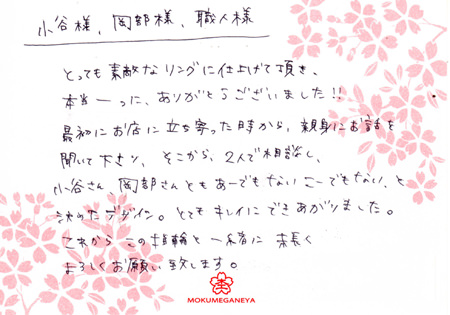 小谷様、岡部様、職人様
とっても素敵なリングに仕上げて頂き、
本当ーっに、ありがとうございました!!
最初にお店に立ち寄った時から、親身にお話を
聞いて下さり、そこから、2人で相談し、
小谷さん 岡部さんともあーでもない こーでもない、と
決めたデザイン。とてもキレイにできあがりました。
これから この指輪と一緒に 末長く
よろしくお願い致します。
MOKUMEGANEYA